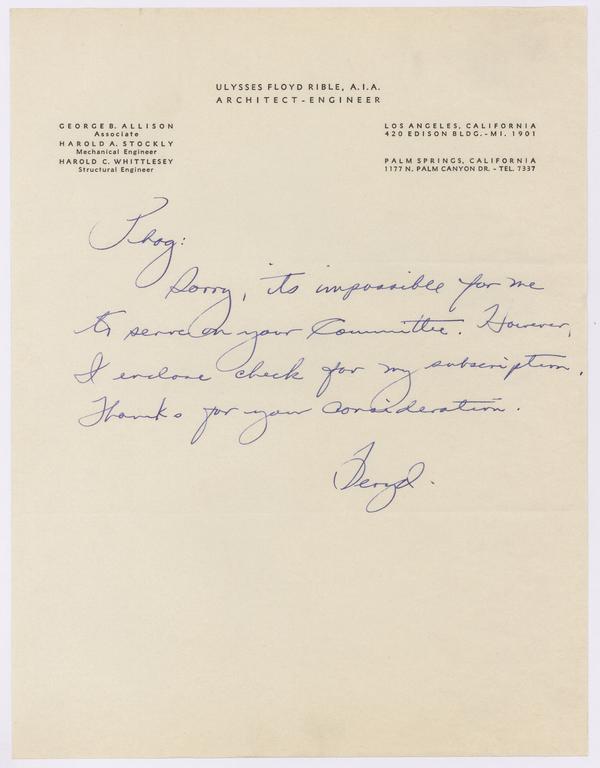 ULYSSES FLOYD RIBLE, A.I.A.
ARCHITECT-ENGINEER
GEORGE B. ALLISON
Associate
HAROLD A. STOCKLY
Mechanical Engineer
HAROLD C. WHITTLESEY
Structural Engineer
LOS ANGELES, CALIFORNIA
420 EDISON BLDG.-MI. 1901
PALM SPRINGS, CALIFORNIA
1177 N. PALM CANYON DR. - TEL. 7337
Phog:
Sorry, its impossible for me
to serve on your Committee. However,
I enclose check for my subscription.
Thanks for your consideration.
Floyd.